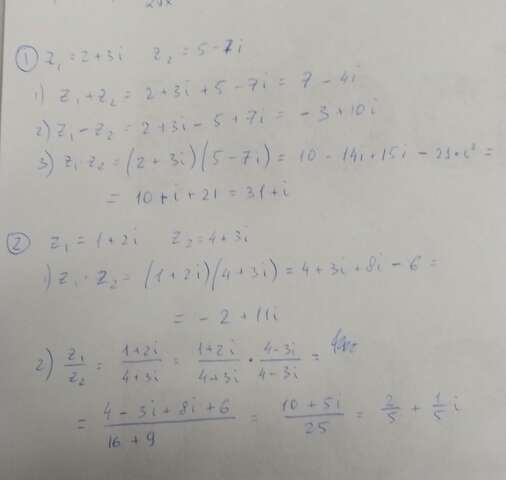 ① z₁ = 2+3i z₂ = 5-7i
1) z₁+z₂ = 2+3i+5-7i = 7-4i
2) z₁-z₂ = 2+3i-5+7i = -3+10i
3) z₁·z₂ = (2+3i)(5-7i) = 10-14i+15i-21·i² =
= 10+i+21 = 31+i
② z₁ = 1+2i z₂ = 4+3i
1) z₁·z₂ = (1+2i)(4+3i) = 4+3i+8i-6 =
= -2+11i
2) z₁/z₂ = (1+2i)/(4+3i) = (1+2i)/(4+3i) · (4-3i)/(4-3i) =
= (4-3i+8i+6)/(16+9) = (10+5i)/25 = 2/5 + 1/5 i